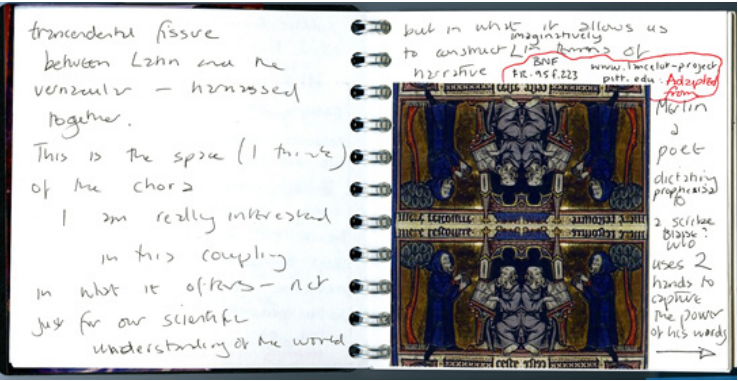 trancendental fissure
between Latin and the
vernacular – harnassed
together.
This is the space (I think)
of the chora
I am really interested
in this coupling
in what it offers – not
just for our scientific
understanding of the world
but in what it allows us
imaginatively
to construct in terms of
narrative
BNF
FR. 95 f.223
www.lancelot-project
pitt.edu. Adapted
from
Merlin
a
poet
dictating
prophesies
to
a scribe
Blaise?
who
uses 2
hands to
capture
the power
of his words